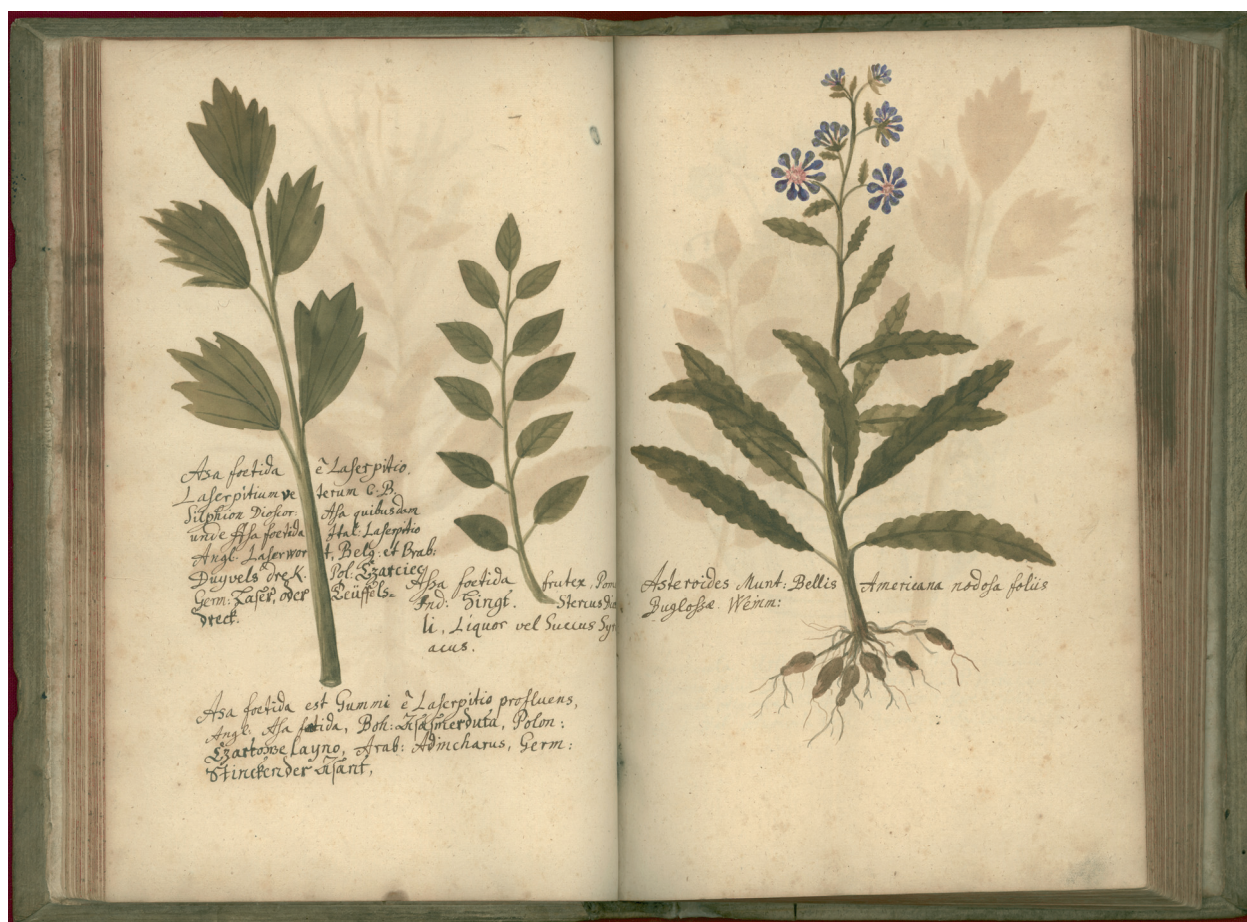 Asa foetida è Laserpitio.
Laserpitium veterum C. B.
Silphion Dioscor: Asa quibusdam
unde Assa foetida Ital: Laserpitio
Angl. Laserwort, Belg: et Brab:
Duyvels drek. Pol: Czarcieg
Germ: Laser, oder Teüffels-
dreck.
Assa foetida frutex,
Ind: Hingt.
li, Liquor vel Succus Sy
acus.
Asa foetida est Gummi è Laserpitio profluens,
Angl. Asa fetida, Boh: Polon:
Czartowe layno, Arab: Admcharus, Germ:
Stinckender Asant,
Asteroides Munt: Bellis Americana nodosa foliis
Buglossæ Weinm: